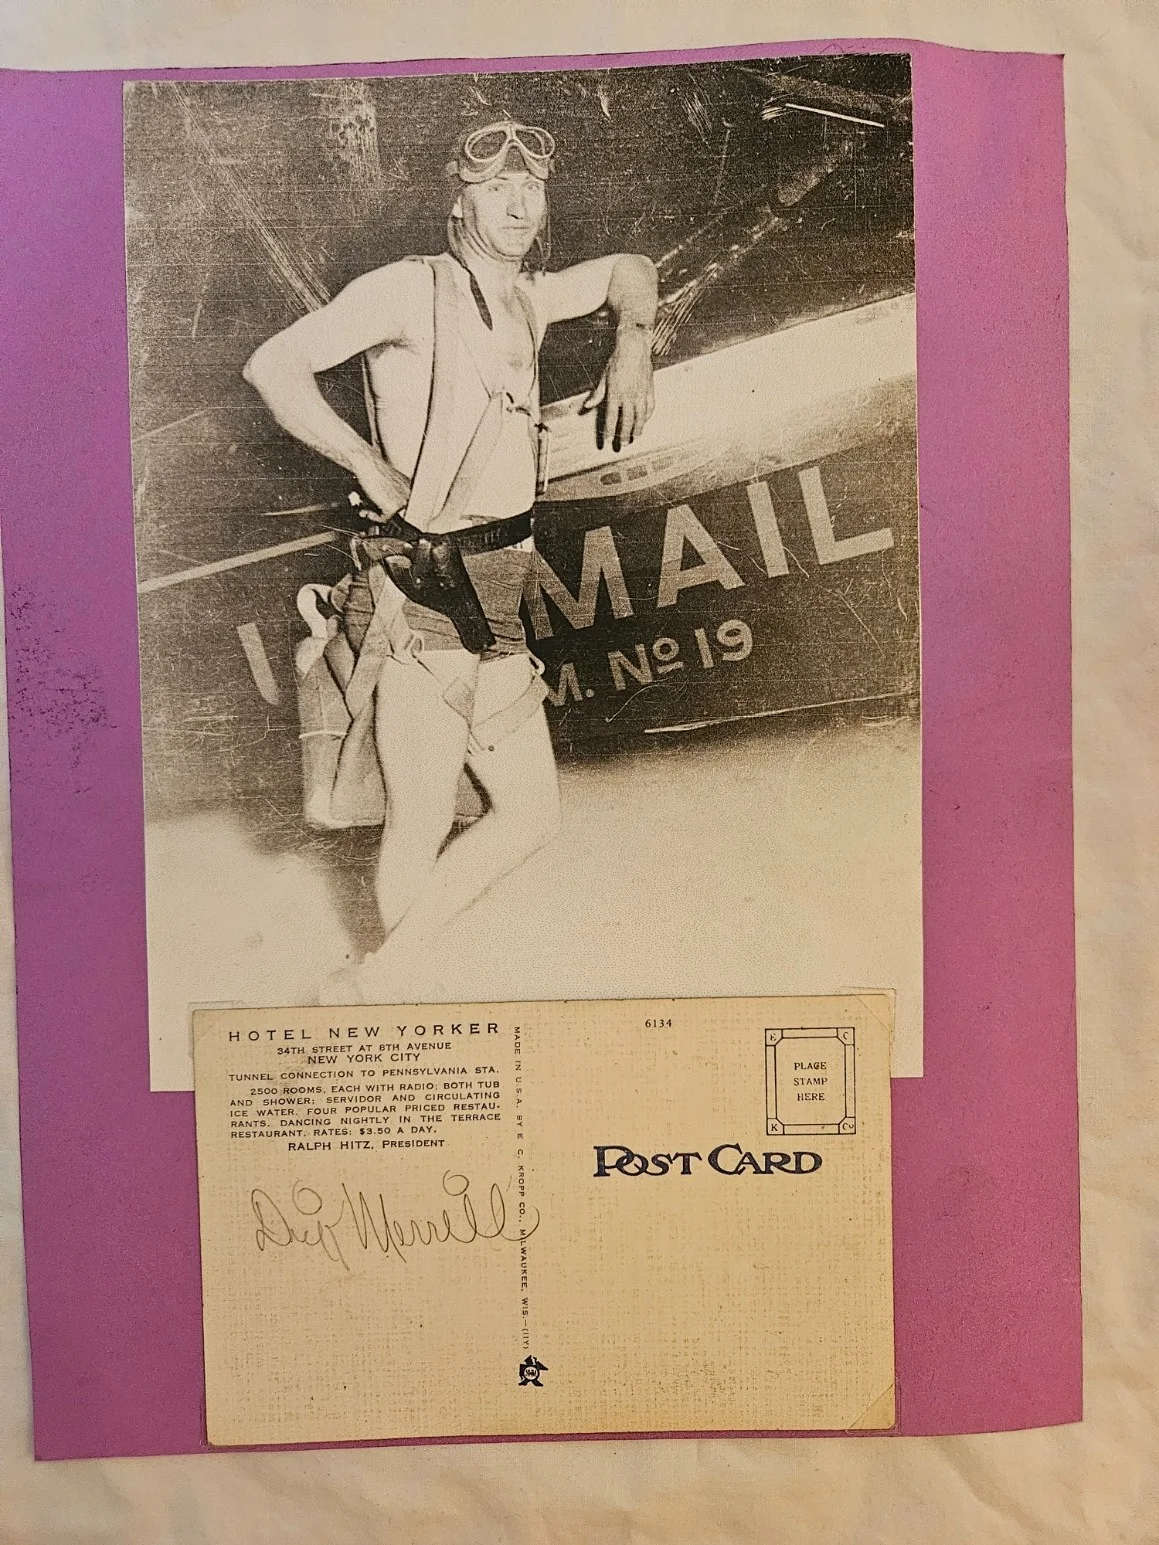 U
MAIL
M. No 19
HOTEL NEW YORKER
34TH STREET AT 8TH AVENUE
NEW YORK CITY
TUNNEL CONNECTION TO PENNSYLVANIA STA.
2500 ROOMS, EACH WITH RADIO; BOTH TUB
AND SHOWER; SERVIDOR AND CIRCULATING
ICE WATER. FOUR POPULAR PRICED RESTAU-
RANTS. DANCING NIGHTLY IN THE TERRACE
RESTAURANT. RATES: $3.50 A DAY.
RALPH HITZ, PRESIDENT
Dick Merrill
MADE IN U.S.A. BY E. C. KROPP CO., MILWAUKEE, WIS.—(11Y)
6134
E C
PLACE
STAMP
HERE
K Co
POST CARD